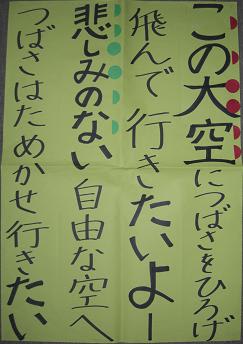 この大空につばさをひろげ
飛んで行きたいよー
悲しみのない自由な空へ
つばさはためかせ行きたい